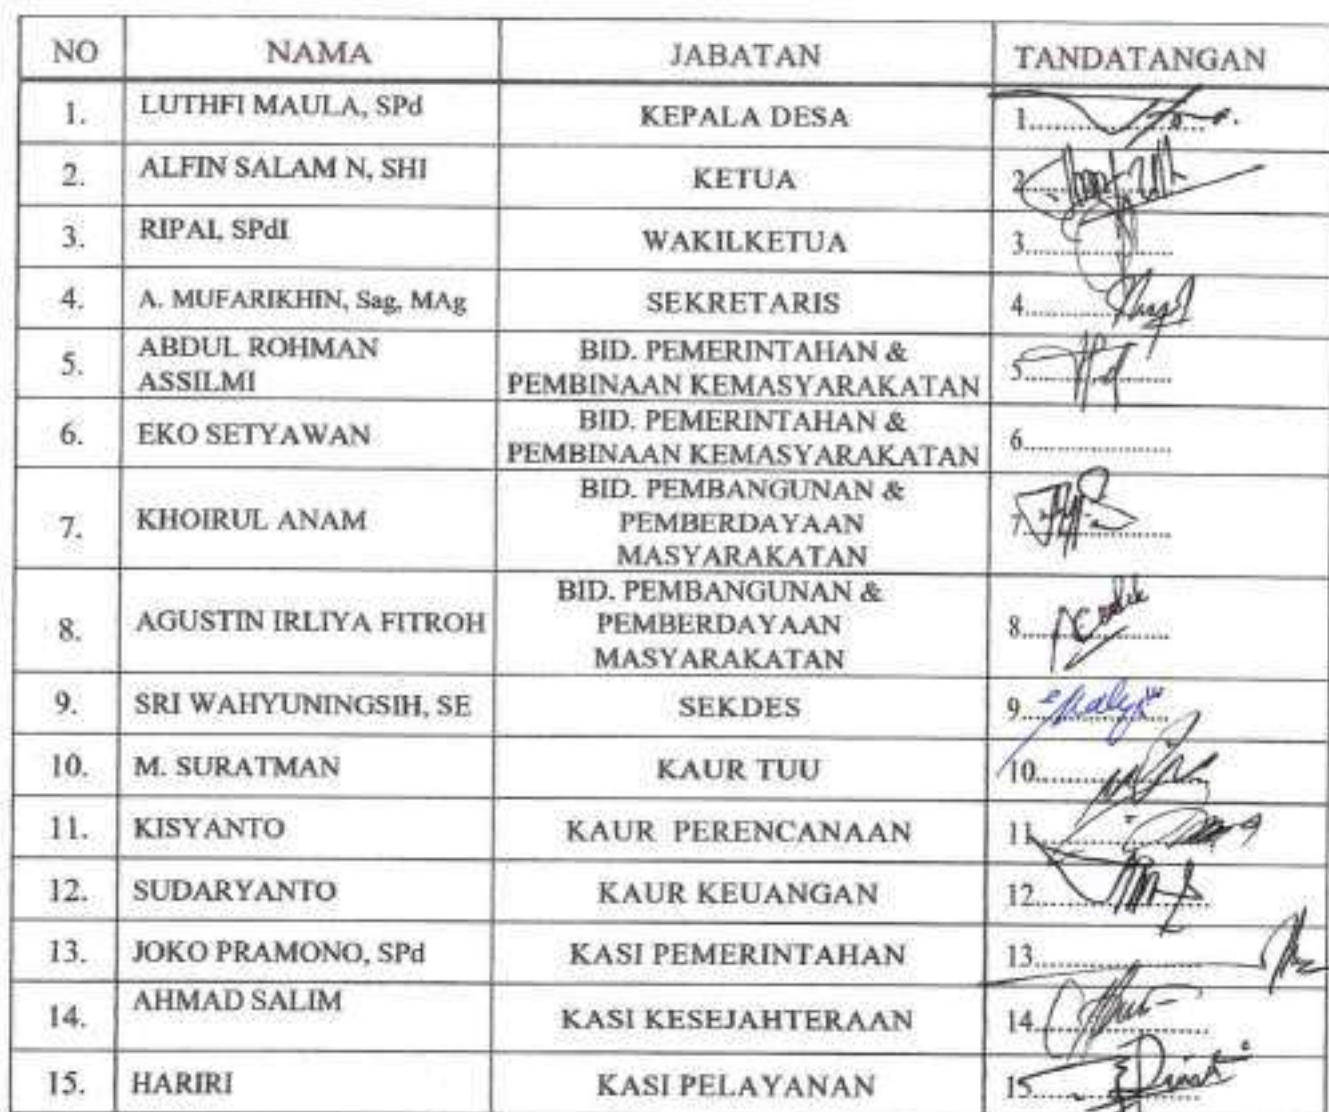 NO NAMA JABATAN TANDATANGAN
1. LUTHFI MAULA, SPd KEPALA DESA 1..........
2. ALFIN SALAM N, SHI KETUA 2..........
3. RIPAI, SPdI WAKILKETUA 3..........
4. A. MUFARIKHIN, Sag, MAg SEKRETARIS 4..........
5. ABDUL ROHMAN ASSILMI BID. PEMERINTAHAN & PEMBINAAN KEMASYARAKATAN 5..........
6. EKO SETYAWAN BID. PEMERINTAHAN & PEMBINAAN KEMASYARAKATAN 6..........
7. KHOIRUL ANAM BID. PEMBANGUNAN & PEMBERDAYAAN MASYARAKATAN 7..........
8. AGUSTIN IRLIYA FITROH BID. PEMBANGUNAN & PEMBERDAYAAN MASYARAKATAN 8..........
9. SRI WAHYUNINGSIH, SE SEKDES 9..........
10. M. SURATMAN KAUR TUU 10..........
11. KISYANTO KAUR PERENCANAAN 11..........
12. SUDARYANTO KAUR KEUANGAN 12..........
13. JOKO PRAMONO, SPd KASI PEMERINTAHAN 13..........
14. AHMAD SALIM KASI KESEJAHTERAAN 14..........
15. HARIRI KASI PELAYANAN 15..........